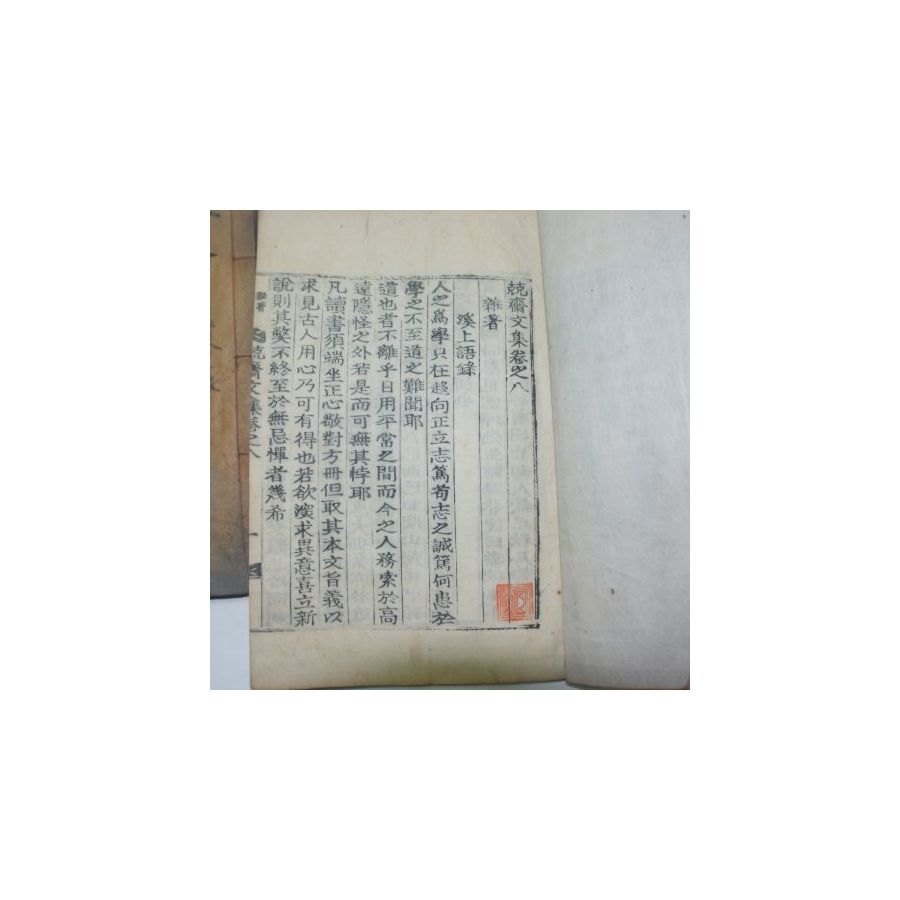 兢齋文集卷之八
雜著
溪上語錄
人之爲學只在趍向正立志篤苟志之誠篤何患於
學之不至道之難聞耶
道也者不離乎日用平常之間而今之人務索於高
遠隱怪之外若是而可無其悖耶
凡讀書須端坐正心敬對方冊但取其本文旨義以
求見古人用心乃可有得也若欲深求異意喜立新
說則其弊不終至於無忌憚者幾希
雜著
兢齋文集卷之八
一